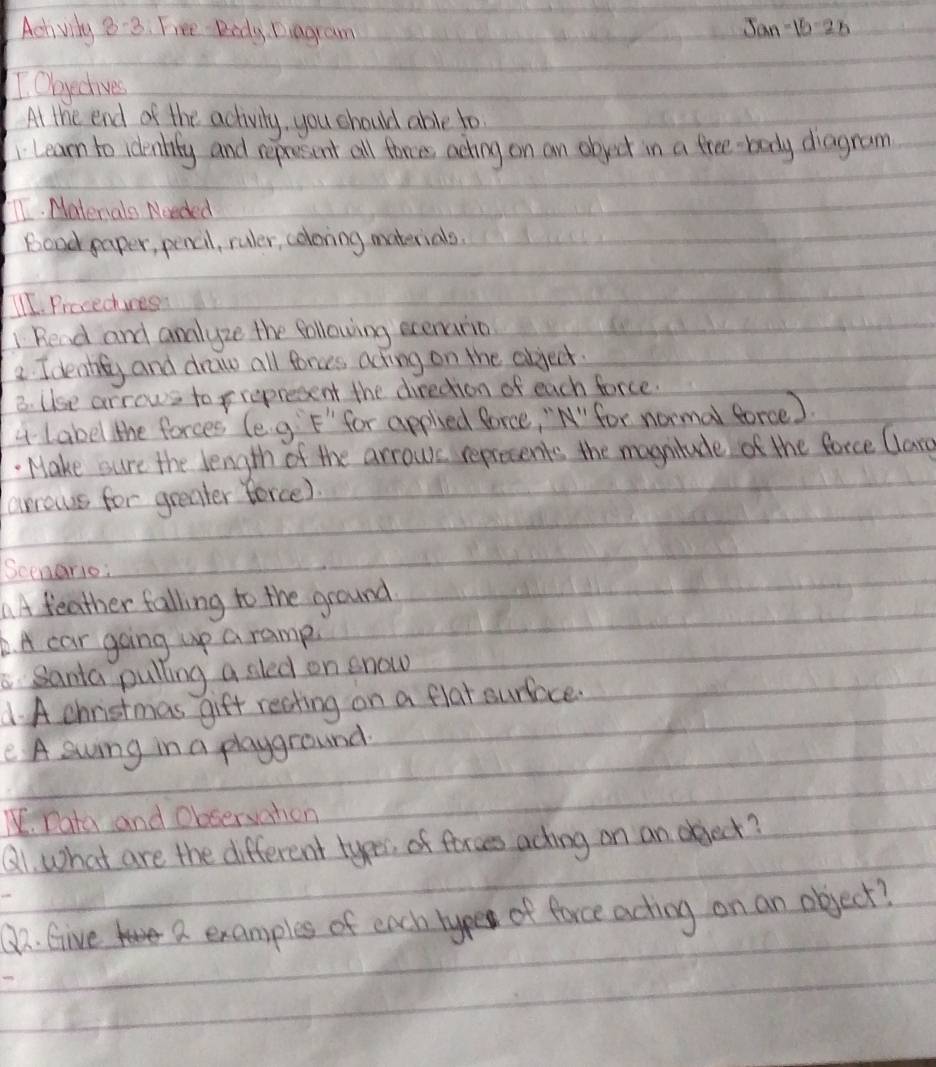 Activity 3-3: Free-Body Diagram
Jan-15-25
I. Objectives
At the end of the activity, you should able to.
1. Learn to identify and represent all forces acting on an object in a free-body diagram
II. Materials Needed
Bond paper, pencil, ruler, coloring materials.
III. Procedures:
1. Read and analyze the following scenario
2. Identify and draw all forces acting on the object.
3. Use arrows to represent the direction of each force.
4. Label the forces (e.g "F" for applied force, "N" for normal force).
• Make sure the length of the arrows represents the magnitude of the force (larg
arrows for greater force).
Scenario:
a. A feather falling to the ground.
b. A car going up a ramp.
c. Santa pulling a sled on snow
d. A christmas gift resting on a flat surface.
e. A swing in a playground.
IV. Data and Observation
Q1. What are the different types of forces acting on an object?
-
Q2. Give two 2 examples of each types of force acting on an object?
-